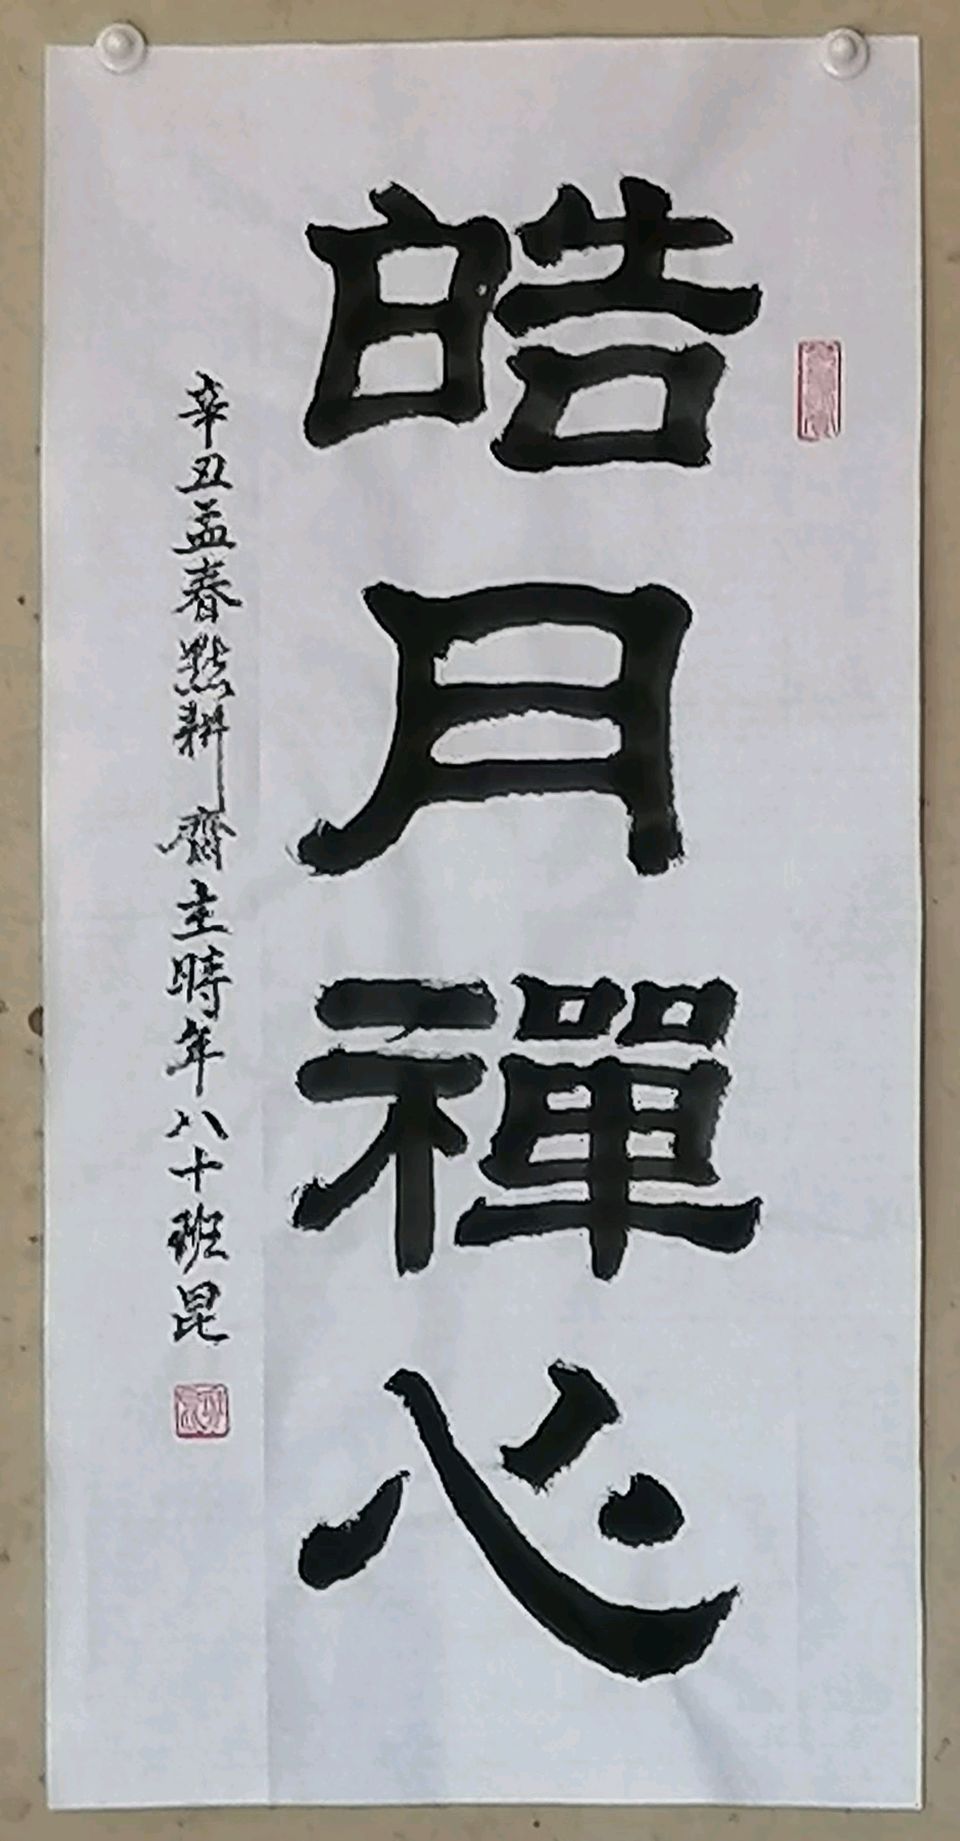 皓月禪心
辛丑孟春默耕齋主時年八十班昆